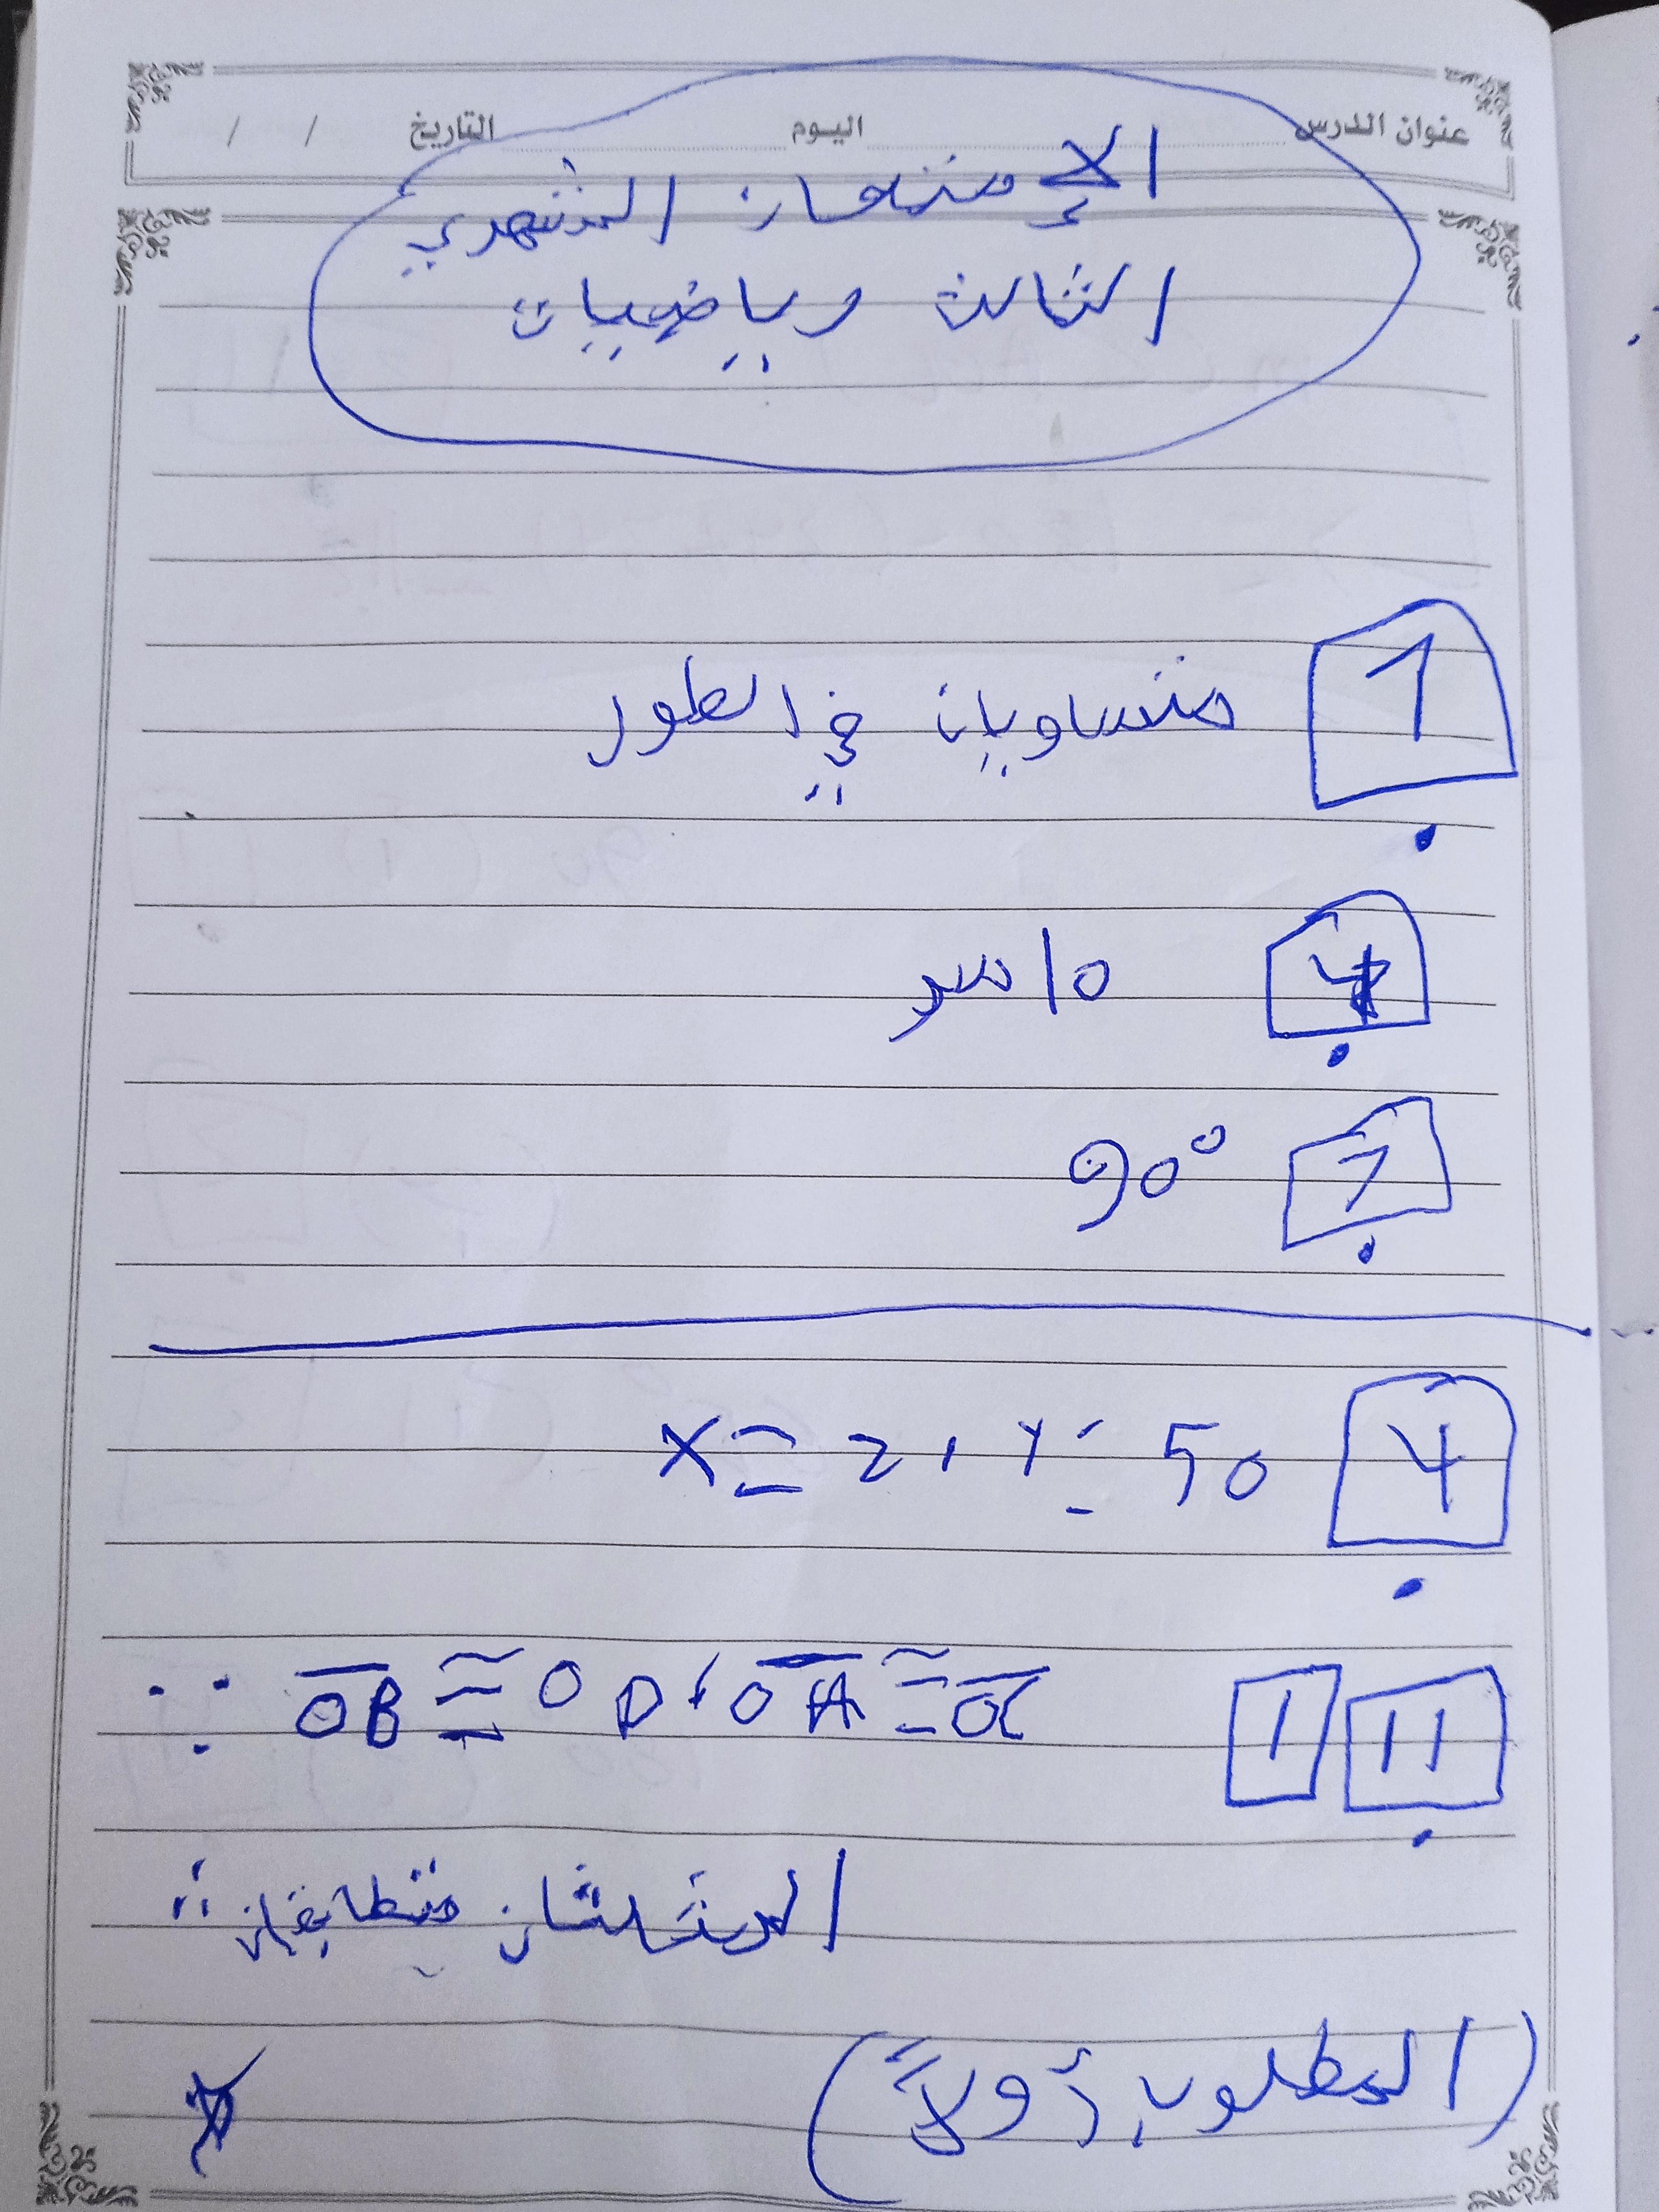 عنوان الدرس اليوم التاريخ / /
الإمتحان الشهري
الثالث رياضيات
1 متساويان في الطور
4
7 90°
4 X = 2 , Y = 50
11 1 ∵ OB ≅ OD , OA ≅ OC
المثلثان متطابقان
(المطلوب أولاً)